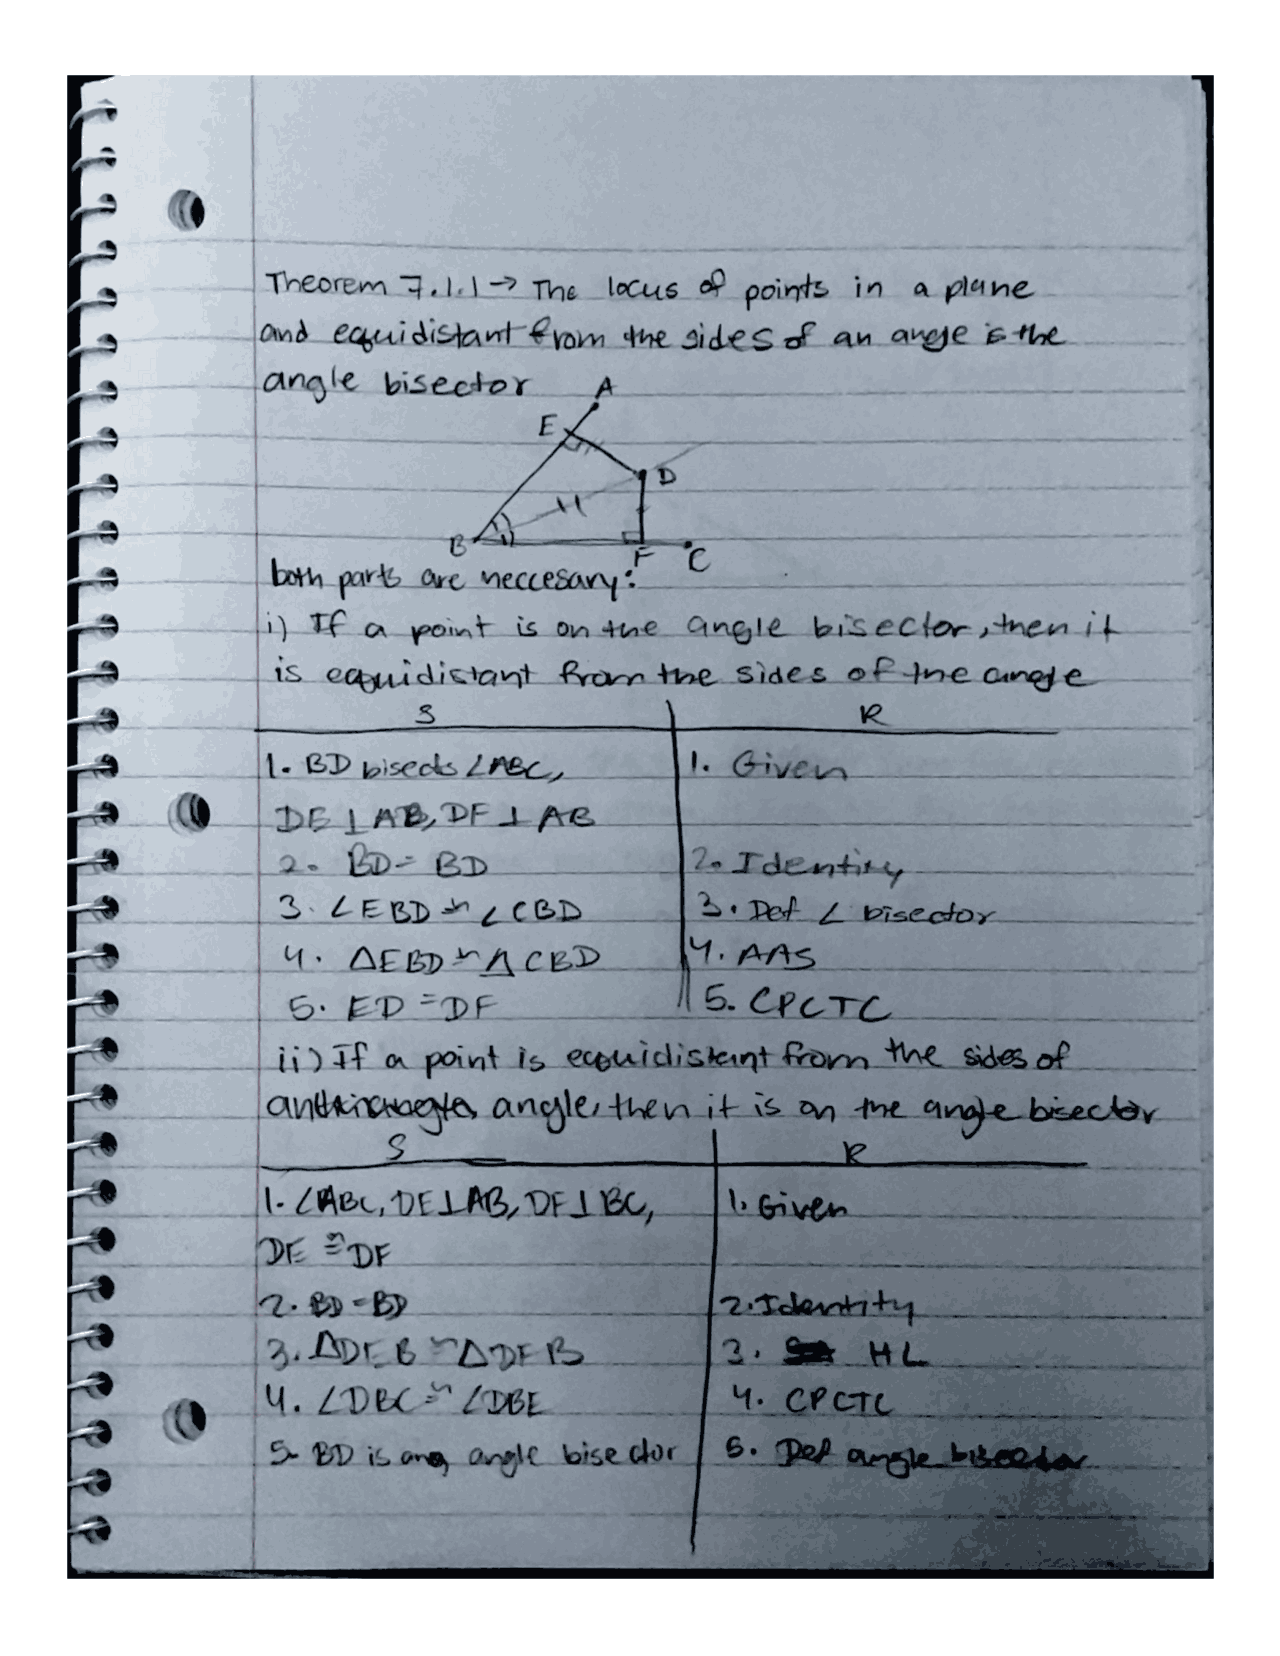 Theorem 7.1.1 → The locus of points in a plane
and equidistant from the sides of an angle is the
angle bisector
A
E
D
B F C
both parts are neccesary:
i) If a point is on the angle bisector, then it
is equidistant from the sides of the angle
S R
1. BD bisects ∠ABC, 1. Given
DE ⊥ AB, DF ⊥ AB
2. BD = BD 2. Identity
3. ∠EBD ≅ ∠CBD 3. Def ∠ bisector
4. △EBD ≅ △CBD 4. AAS
5. ED = DF 5. CPCTC
ii) If a point is equidistant from the sides of
an angle, then it is on the angle bisector
S R
1. ∠ABC, DE⊥AB, DF⊥BC, 1. Given
DE ≅ DF
2. BD = BD 2. Identity
3. △DEB ≅ △DFB 3. HL
4. ∠DBC ≅ ∠DBE 4. CPCTC
5. BD is ang angle bisector 5. Def angle bisector